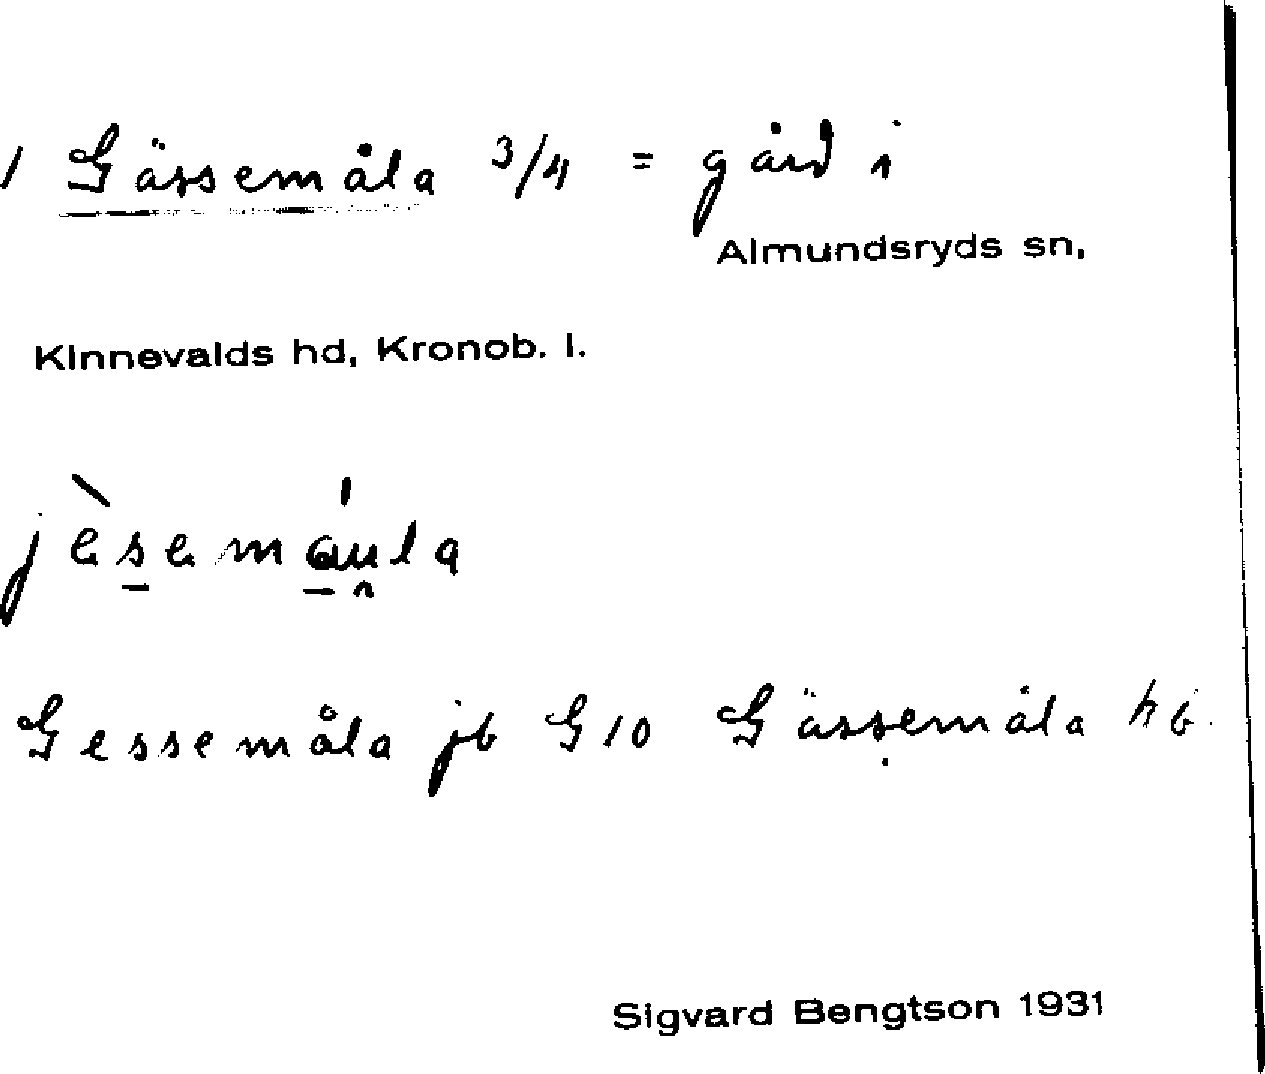 1 Gässemåla 3/4 = gård i
Almundsryds sn,
Kinnevalds hd, Kronob. l.
jèsemáula
Gessemåla jb G10 Gässemåla hb.
Sigvard Bengtson 1931